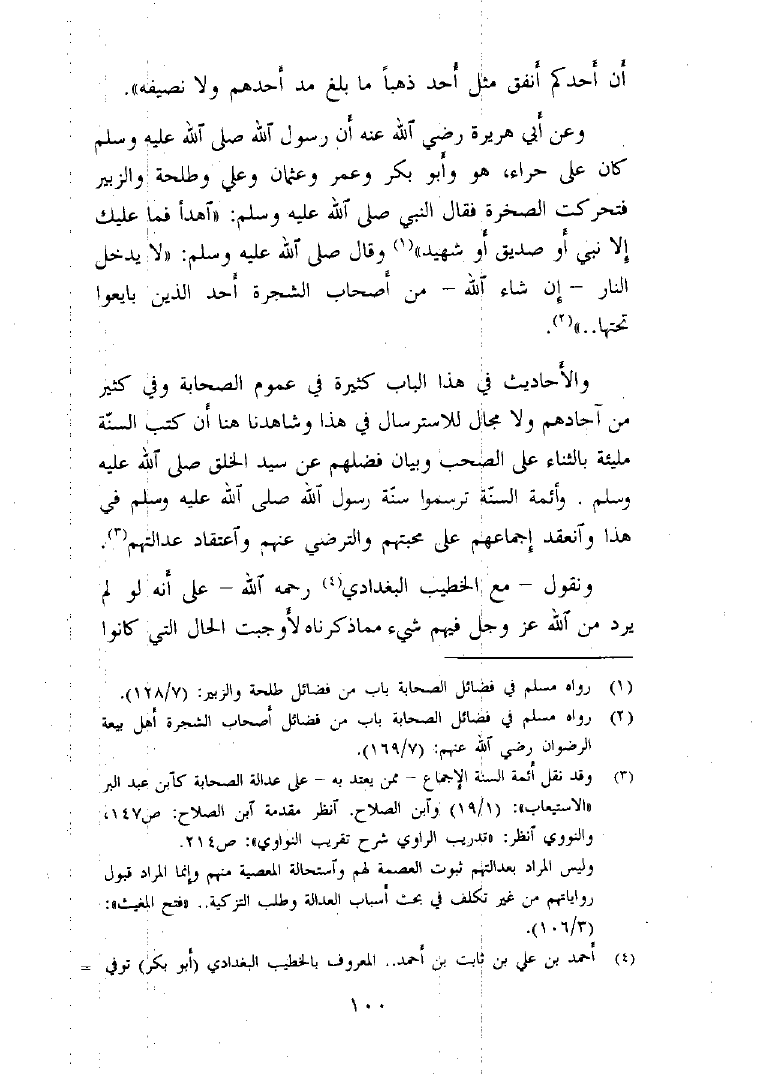 أن أحدكم أنفق مثل أحد ذهباً ما بلغ مد أحدهم ولا نصيفه».
وعن أبي هريرة رضي ٱلله عنه أن رسول ٱلله صلى ٱلله عليه وسلم
كان على حراء، هو وأبو بكر وعمر وعثمان وعلي وطلحة والزبير
فتحركت الصخرة فقال النبي صلى ٱلله عليه وسلم: «ٱهدأ فما عليك
إلا نبي أو صديق أو شهيد»(١) وقال صلى ٱلله عليه وسلم: «لا يدخل
النار – إن شاء ٱلله – من أصحاب الشجرة أحد الذين بايعوا
تحتها..»(٢).
والأحاديث في هذا الباب كثيرة في عموم الصحابة وفي كثير
من آحادهم ولا مجال للاسترسال في هذا وشاهدنا هنا أن كتب السنّة
مليئة بالثناء على الصحب وبيان فضلهم عن سيد الخلق صلى ٱلله عليه
وسلم . وأئمة السنّة ترسموا سنّة رسول ٱلله صلى ٱلله عليه وسلم في
هذا وٱنعقد إجماعهم على محبتهم والترضي عنهم وٱعتقاد عدالتهم(٣).
ونقول – مع الخطيب البغدادي(٤) رحمه ٱلله – على أنه لو لم
يرد من ٱلله عز وجل فيهم شيء مماذكرناه لأوجبت الحال التي كانوا
(١) رواه مسلم في فضائل الصحابة باب من فضائل طلحة والزبير: (١٢٨/٧).
(٢) رواه مسلم في فضائل الصحابة باب من فضائل أصحاب الشجرة أهل بيعة
الرضوان رضي ٱلله عنهم: (١٦٩/٧).
(٣) وقد نقل أئمة السنة الإجماع – ممن يعتد به – على عدالة الصحابة كٱبن عبد البر
«الاستيعاب»: (١٩/١) وٱبن الصلاح. ٱنظر مقدمة ٱبن الصلاح: ص١٤٧،
والنووي ٱنظر: «تدريب الراوي شرح تقريب النواوي»: ص٢١٤.
وليس المراد بعدالتهم ثبوت العصمة لهم وٱستحالة المعصية منهم وإنما المراد قبول
رواياتهم من غير تكلف في بحث أسباب العدالة وطلب التزكية.. «فتح المغيث»:
(١٠٦/٣).
(٤) أحمد بن علي بن ثابت بن أحمد.. المعروف بالخطيب البغدادي (أبو بكر) توفي =
١٠٠